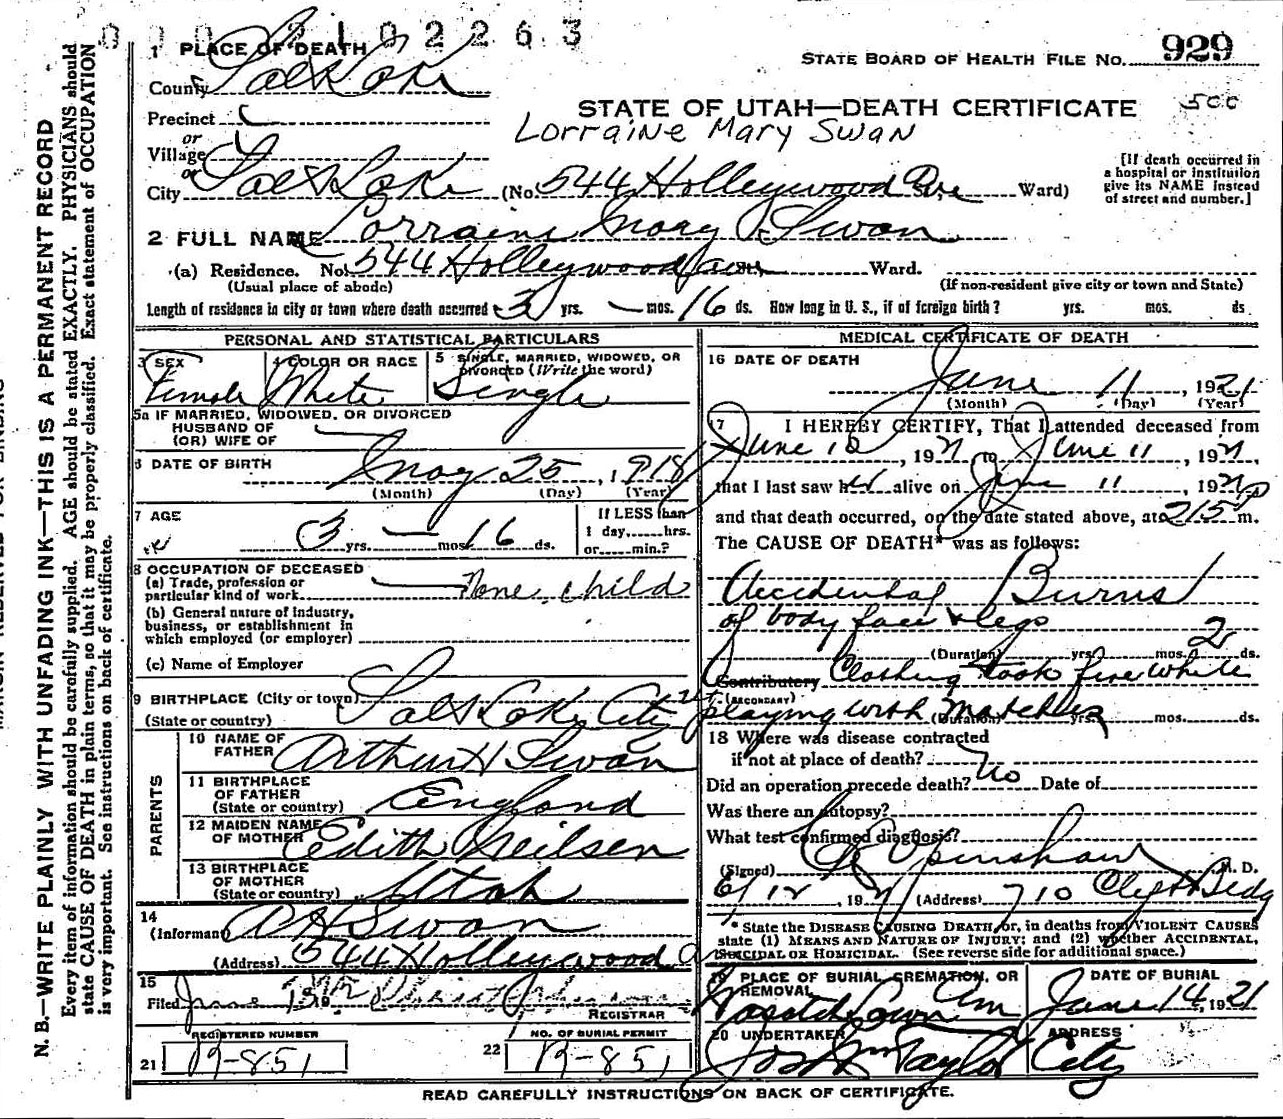 0002102263
1 PLACE OF DEATH
STATE BOARD OF HEALTH FILE NO. 929
County Salt Lake
STATE OF UTAH—DEATH CERTIFICATE 500
Precinct
Lorraine Mary Swan
or
Village
or
City Salt Lake (No. 544 Holleywood Ave, Ward)
[If death occurred in
a hospital or institution
give its NAME instead
of street and number.]
2 FULL NAME Lorraine Mary Swan
(a) Residence. No. 544 Holleywood ave Ward.
(Usual place of abode)
(If non-resident give city or town and State)
Length of residence in city or town where death occurred 3 yrs. — mos. 16 ds. How long in U. S., if of foreign birth? yrs. mos. ds.
PERSONAL AND STATISTICAL PARTICULARS
3 SEX
Female
4 COLOR OR RACE
White
5 SINGLE, MARRIED, WIDOWED, OR
DIVORCED (Write the word)
Single
5a IF MARRIED, WIDOWED, OR DIVORCED
HUSBAND OF
(OR) WIFE OF
6 DATE OF BIRTH
May 25, 1918
(Month) (Day) (Year)
7 AGE
3 yrs. — mos. 16 ds.
If LESS than
1 day, hrs.
or min.?
8 OCCUPATION OF DECEASED
(a) Trade, profession or
particular kind of work None, child
(b) General nature of industry,
business, or establishment in
which employed (or employer)
(c) Name of Employer
9 BIRTHPLACE (City or town) Salt Lake City
(State or country)
PARENTS
10 NAME OF
FATHER Arthur H Swan
11 BIRTHPLACE
OF FATHER
(State or country) England
12 MAIDEN NAME
OF MOTHER Edith Neilsen
13 BIRTHPLACE
OF MOTHER
(State or country) Utah
14
(Informant) A H Swan
(Address) 544 Holleywood
15
Filed
REGISTRAR
REGISTERED NUMBER
21 B-851
NO. OF BURIAL PERMIT
22 B-851
MEDICAL CERTIFICATE OF DEATH
16 DATE OF DEATH
June 11, 1921
(Month) (Day) (Year)
17 I HEREBY CERTIFY, That I attended deceased from
June 10, 1921, to June 11, 1921,
that I last saw her alive on June 11, 1921,
and that death occurred, on the date stated above, at 215 P m.
The CAUSE OF DEATH* was as follows:
Accidental Burns
of body face & legs
(Duration) yrs. mos. 2 ds.
Contributory Clothing took fire while
(SECONDARY)
playing with Matches
(Duration) yrs. mos. ds.
18 Where was disease contracted
if not at place of death?
Did an operation precede death? No Date of
Was there an autopsy?
What test confirmed diagnosis?
(Signed) Openshaw M. D.
6/12, 1921 (Address) 710 Clift Bldg
* State the DISEASE CAUSING DEATH, or, in deaths from VIOLENT CAUSES
state (1) MEANS AND NATURE OF INJURY; and (2) whether ACCIDENTAL,
SUICIDAL OR HOMICIDAL. (See reverse side for additional space.)
19 PLACE OF BURIAL, CREMATION, OR
REMOVAL
Wasatch Lawn
DATE OF BURIAL
June 14, 1921
20 UNDERTAKER
Jos Wm Taylor
ADDRESS
City
READ CAREFULLY INSTRUCTIONS ON BACK OF CERTIFICATE.
N. B.—WRITE PLAINLY WITH UNFADING INK—THIS IS A PERMANENT RECORD
Every item of information should be carefully supplied. AGE should be stated EXACTLY. PHYSICIANS should
state CAUSE OF DEATH in plain terms, so that it may be properly classified. Exact statement of OCCUPATION
is very important. See instructions on back of certificate.